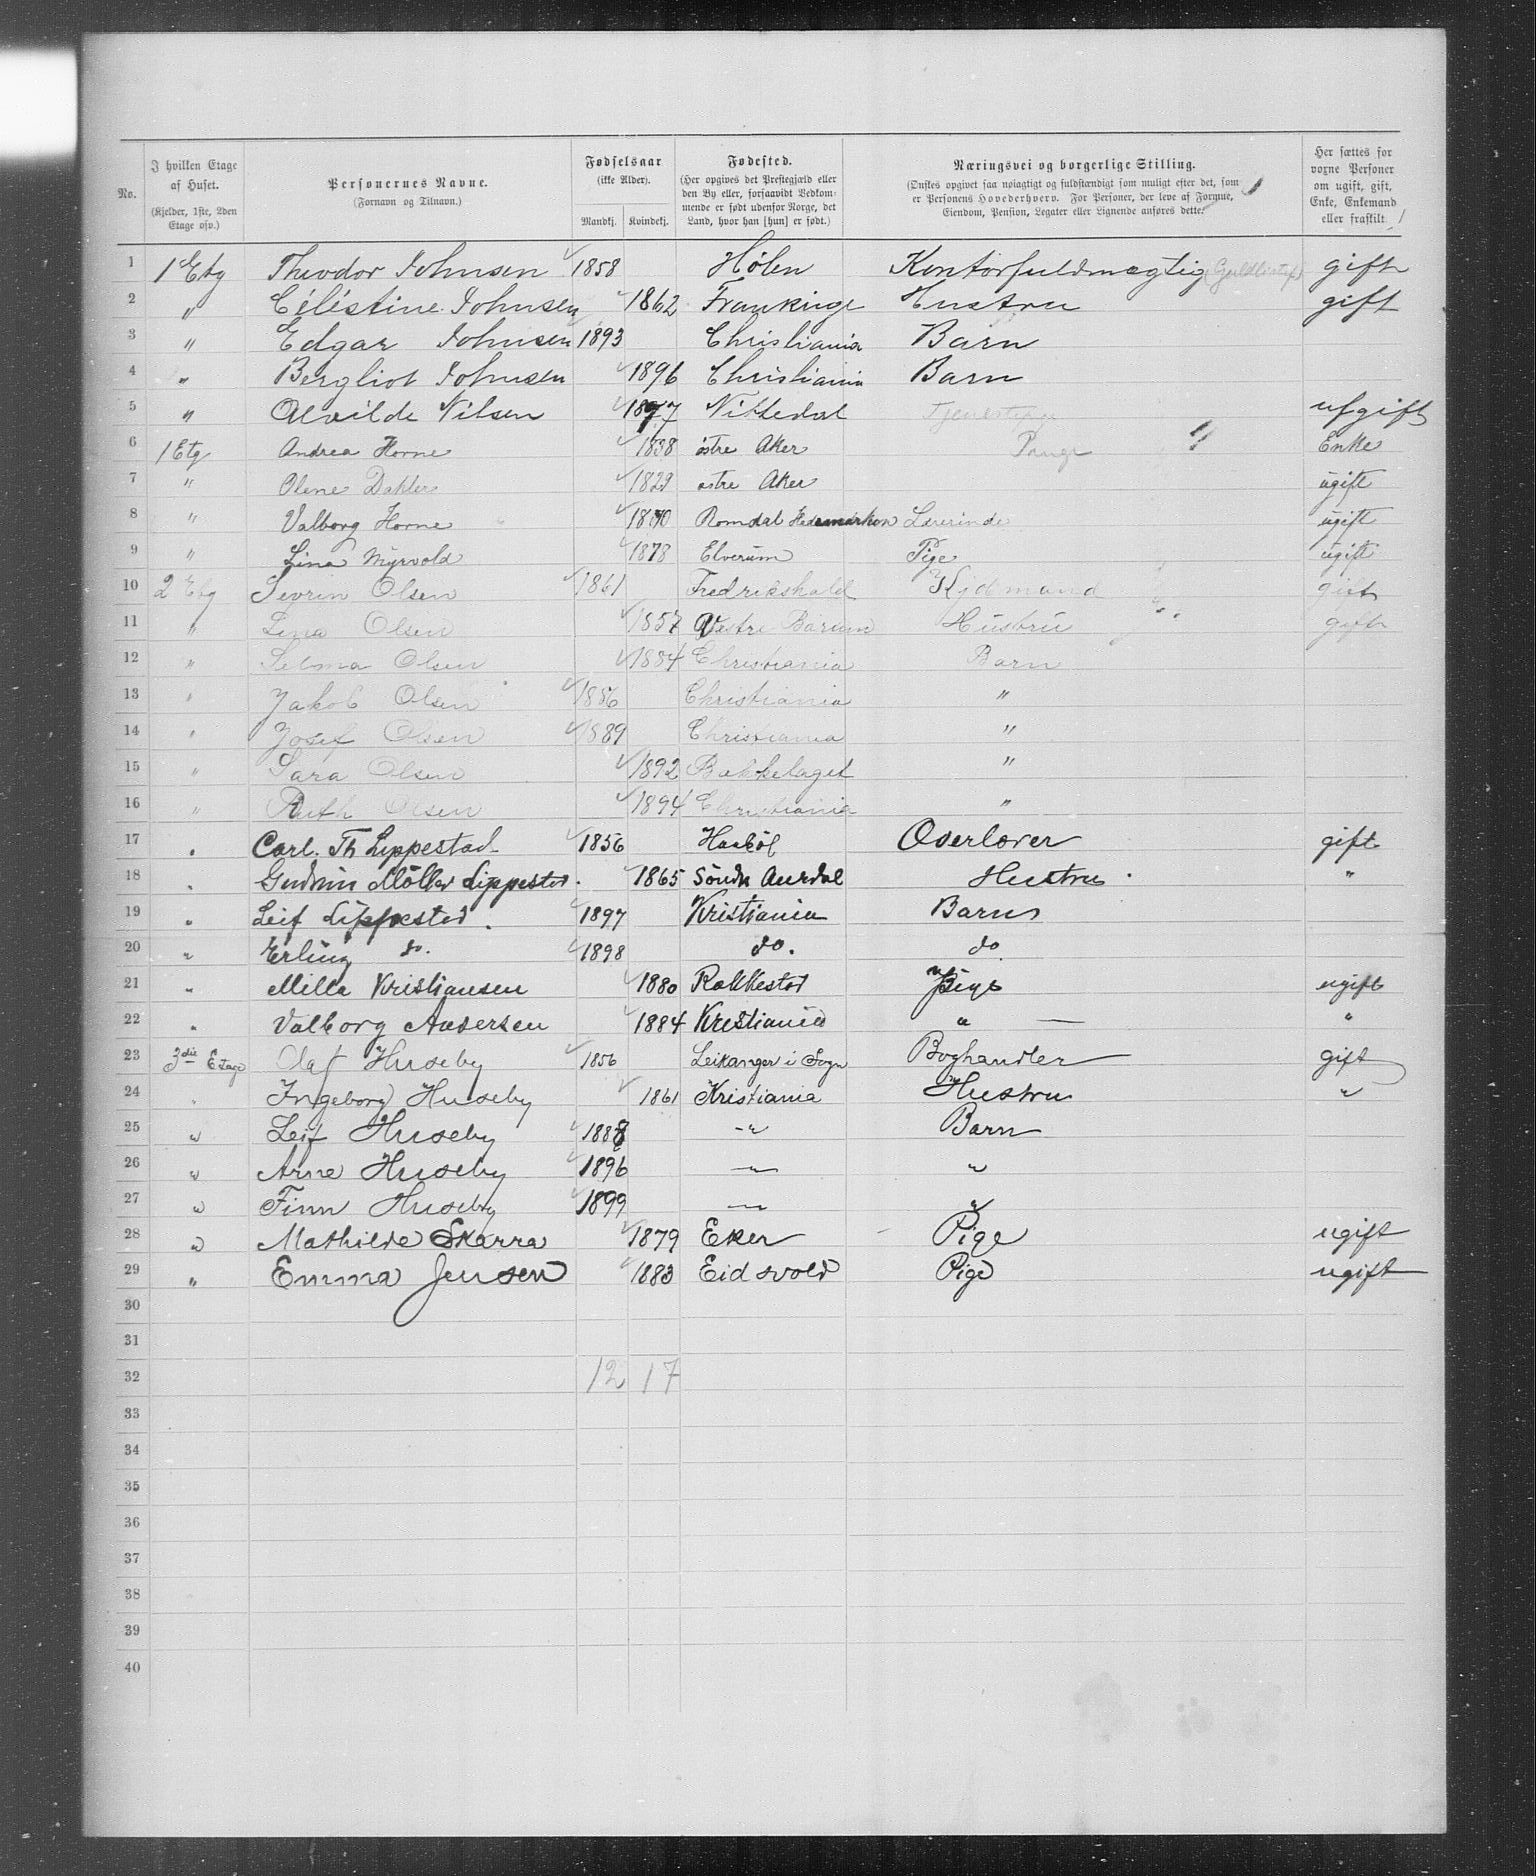 No. I hvilken Etage af Huset. (Kjelder, 1ste, 2den Etage osv.) Personernes Navne. (Fornavn og Tilnavn.) Fødselsaar (ikke Alder). Mandkj. Kvindekj. Fødested. (Her opgives det Prestegjæld eller den By eller, forsaavidt Vedkommende er født udenfor Norge, det Land, hvor han [hun] er født.) Næringsvei og borgerlige Stilling. (Ønskes opgivet saa nøiagtigt og fuldstændigt som muligt efter det, som er Personens Hovederhverv. For Personer, der leve af Formue, Eiendom, Pension, Legater eller Lignende anføres dette.) Her sættes for voxne Personer om ugift, gift, Enke, Enkemand eller fraskilt.
1 1 Etg Theodor Johnsen 1858 Hölen Kontorfuldmægtig gift
2 " Céléstine Johnsen 1862 Frankrige Hustru gift
3 " Edgar Johnsen 1893 Christiania Barn
4 " Bergliot Johnsen 1896 Christiania Barn
5 " Alvilde Nilsen 1877 Nittedal Tjenestepige ugift
6 1 Etg Andrea Horne 1838 östre Aker Enke
7 " Oline Dahler 1829 östre Aker ugift
8 " Valborg Horne 1870 Romdal Hedemarken Lærerinde ugift
9 " Lina Myrvold 1878 Elverum Pige ugift
10 2 Etg Sevrin Olsen 1861 Fredrikshald gift
11 " Lina Olsen 1857 Vestre Bærum Hustru gift
12 " Selma Olsen 1884 Christiania Barn
13 " Jakob Olsen 1886 Christiania "
14 " Josef Olsen 1889 Christiania "
15 " Sara Olsen 1892 Bækkelaget "
16 " Ruth Olsen 1894 Christiania "
17 " Carl. Th Lippestad 1856 Haaböl Overlærer gift
18 " Gudrun Möller Lippestad. 1865 Söndr Aurdal Hustru "
19 " Leif Lippestad. 1897 Kristiania Barn
20 " Erling do. 1898 do. do
21 " Milla Kristiansen 1880 Rakkestad Pige ugift
22 " Valborg Andersen 1884 Kristiania " — "
23 3die Etage Olaf Huseby 1856 Leikanger i Sogn Boghandler gift
24 " Ingeborg Huseby 1861 Kristiania Hustru "
25 " Leif Huseby 1888 -"- Barn
26 " Arne Huseby 1896 -"- "
27 " Finn Huseby 1899 -"- "
28 " Mathilde Skarra 1879 Eker Pige ugift
29 " Emma Jensen 1883 Eidsvold Pige ugift
30
31
32 12 17
33
34
35
36
37
38
39
40